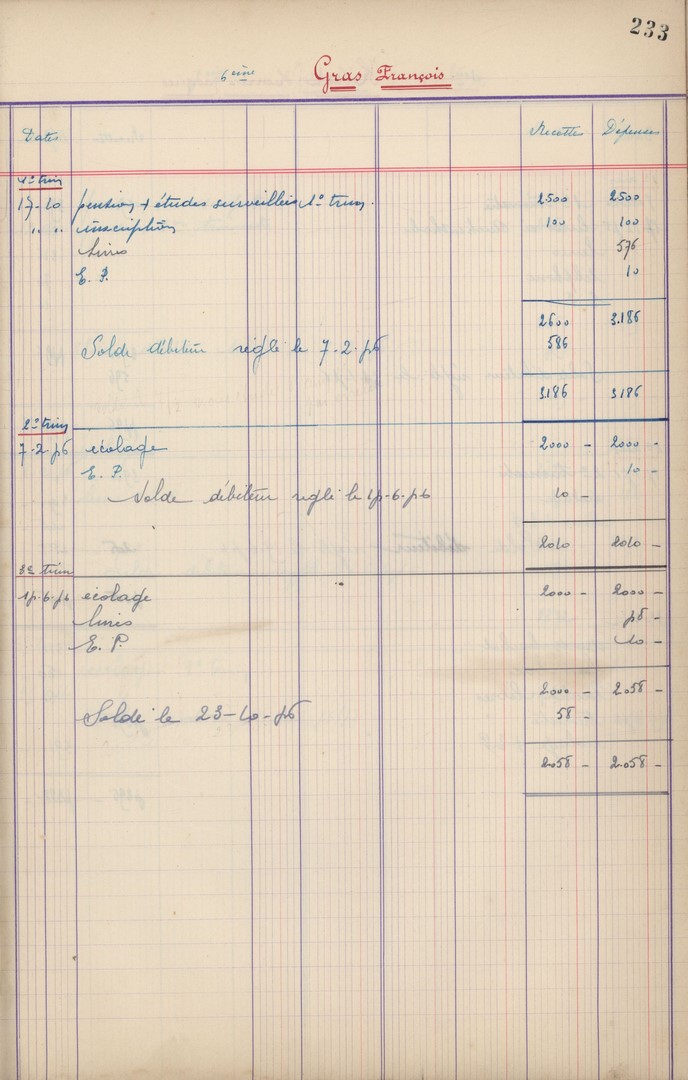 233
6eme Gras François
Dates Recettes Dépenses
1er trim
17-10 pension + études surveillées 1er trim. 2500 2500
" " inscription 100 100
Livres 576
E. P. 10
2600 3.186
Solde débiteur réglé le 7.2.56 586
3186 3186
2e trim
7-2-56 écolage 2000 - 2000 -
E. P. 10 -
Solde débiteur réglé le 15-6-56 10 -
2010 2010 -
3e trim
15.6.56 écolage 2000 - 2000 -
livres
E. P. 10 -
2000 - 2058 -
Solde le 23-10-56 58 -
2058 - 2058 -